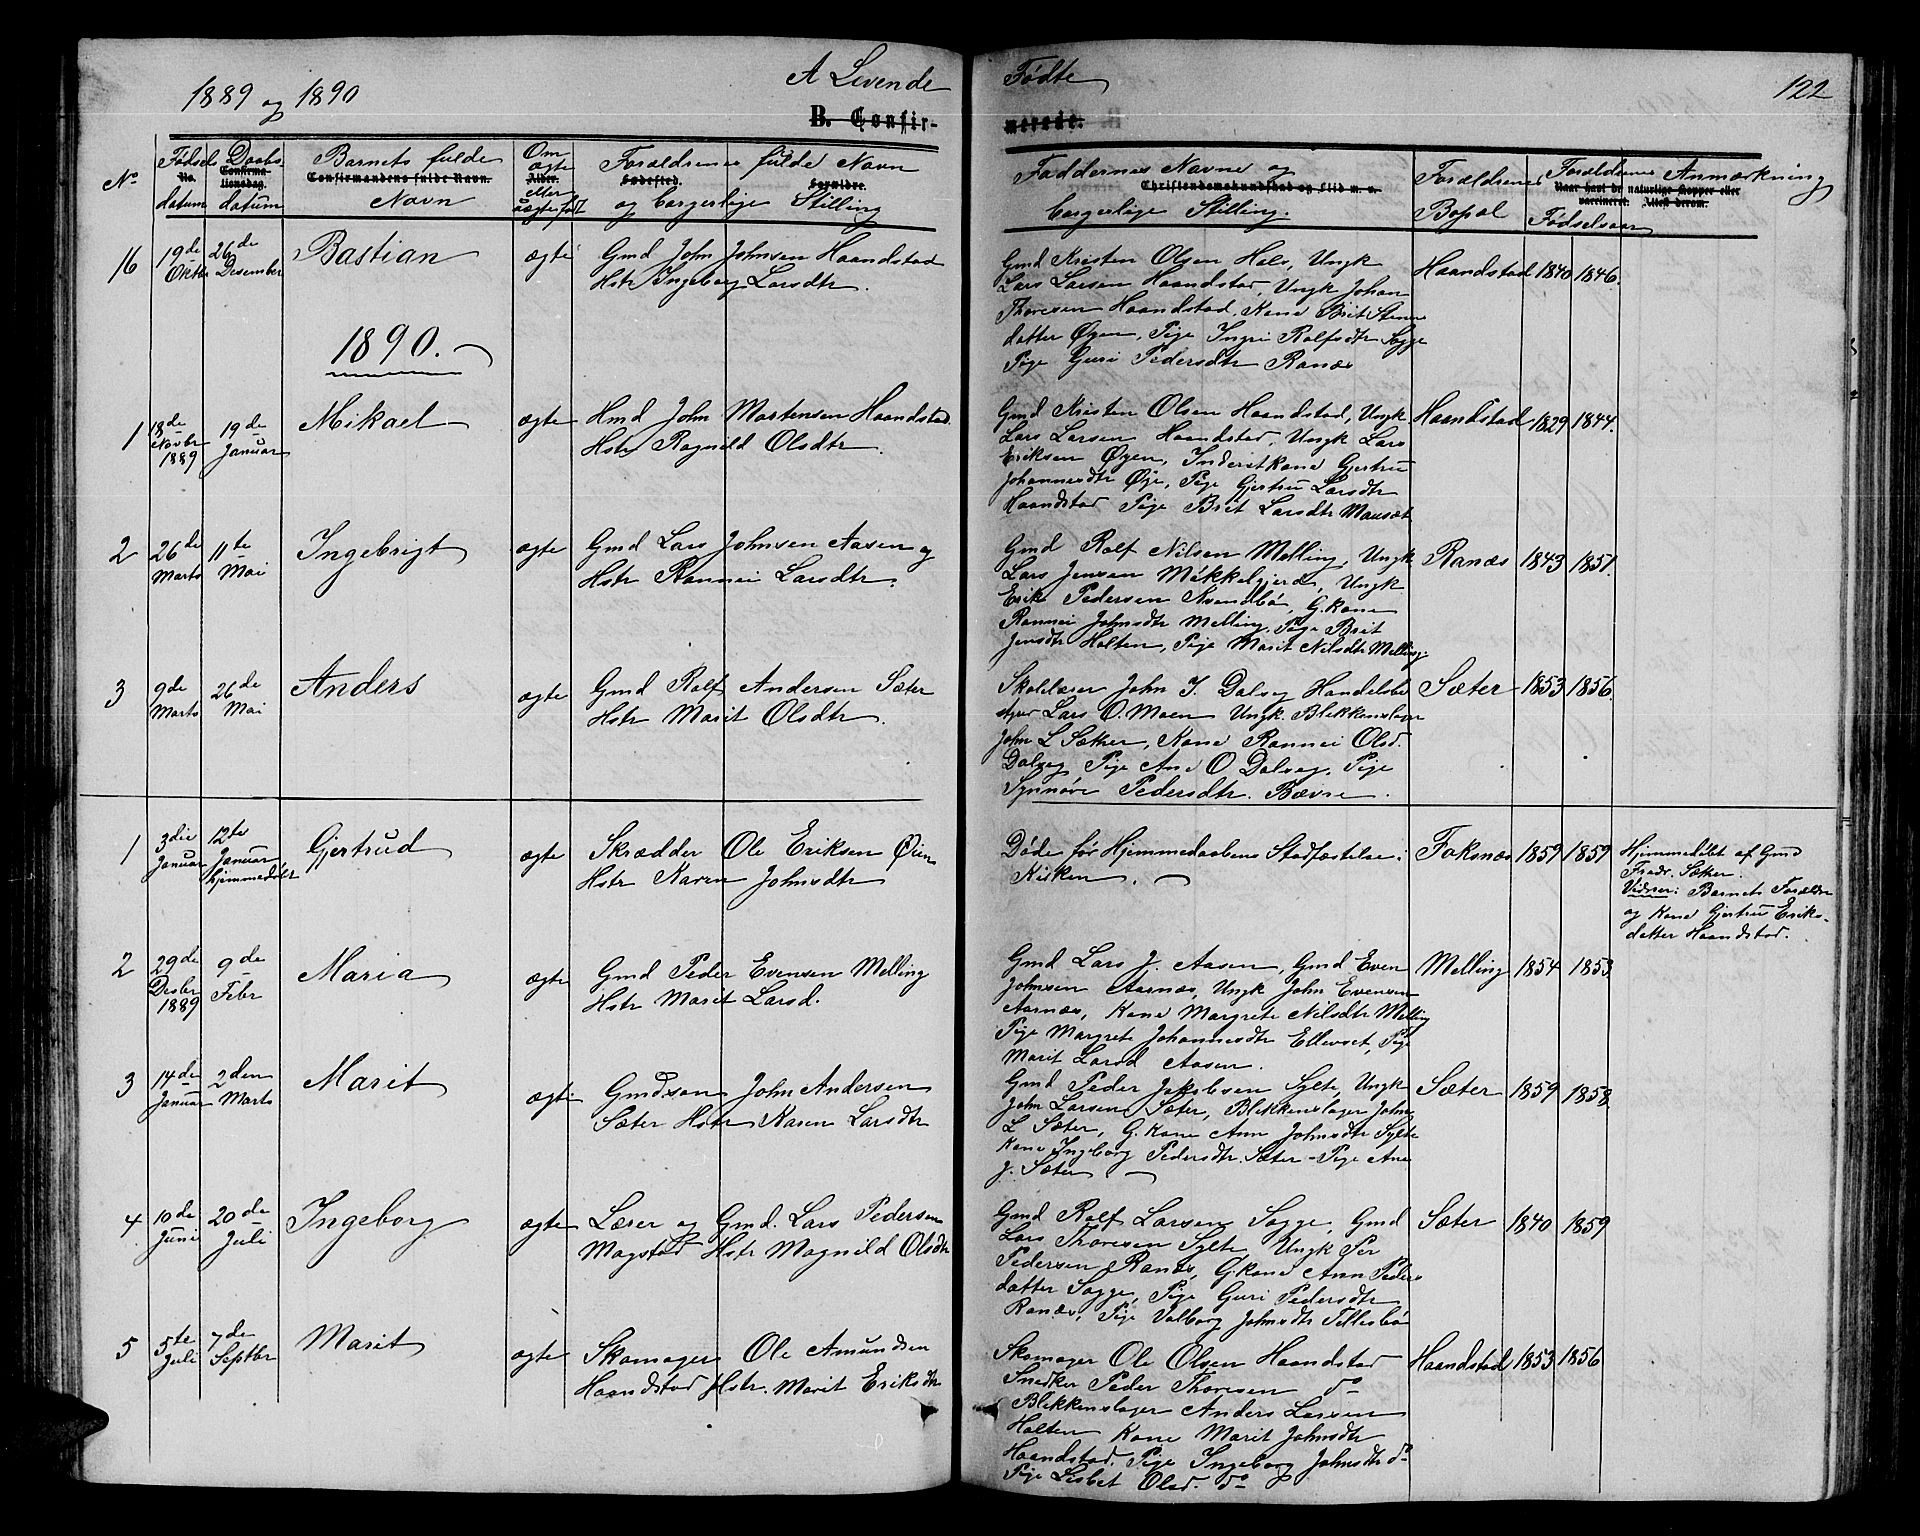 1889 og 1890
A Levende
Fødte
122
B. Confir-
merede.
No
Fødsels
No.
datum
Daabs-
Confirma-
tionsdag.
datum
Barnets fulde
Confirmandens fulde Navn.
Navn
Om
ægte
Alder.
eller
uægte født
Forældrenes fulde Navn
Fødested. Forældre.
og borgerlige Stilling
Faddernes Navne og
Christendomskundskab og Flid m. v.
borgerlige Stilling.
Forældrenes
Bopæl
Forældrenes Anmærkning
Naar havt de naturlige Kopper eller
vaccineret. Attest derom.
Fødselsaar
16
19de
Oktbr
26de
Desember
Bastian
ægte
Gmd John Johnsen Haandstad
Hstr Ingeborg Larsdtr.
Gmd Kristen Olsen Hals, Ungk
Lars Larsen Haandstad, Ungk Johan
Thoresen Haandstad, Kone Brit Steners
datter Øyen, Pige Ingri Rolfsdtr Sogge
Pige Guri Pedersdtr Ranæs
Haandstad 1840 1846.
1890.
1
18de
Novbr
1889
19de
Januar
Mikael
ægte
Hmd John Mortensen Haandstad.
Hstr Ragnild Olsdtr.
Gmd Kristen Olsen Haandstad, Ungk
Lars Larsen Haandstad, Ungk Lars
Eriksen Øyen, Inderstkone Gjertru
Johannesdtr Øye, Pige Gjertru Larsdtr
Haandstad Pige Brit Larsdtr Mausæt
Haandstad 1829 1844.
2
26de
Marts
11te
Mai
Ingebrigt
ægte
Gmd Lars Johnsen Aasen og
Hstr Rannei Larsdtr.
Gmd Rolf Nilsen Melling, Ungk
Lars Jensen Mikkelgjerd, Ungk
Erik Pedersen Kvandbø, G.kone
Rannei Johnsdtr Melling. Pige Brit
Jensdtr Holten, Pige Marit Nilsdtr Melling.
Ranæs 1843 1851.
3
9de
Marts
26de
Mai
Anders
ægte
Gmd Rolf Andersen Sæter
Hstr Marit Olsdtr.
Skolelærer John J. Dalseg Handelsbe
styrer Lars O. Moen Ungk. Blikkenslager
John L Sæther, Kone Rannei Olsd.
Dalseg Pige Ane O Dalseg. Pige
Synnøve Pedersdtr. Bævre.
Sæter 1853 1856.
1
3die
Januar
12te
Januar
hjemmedøbt
Gjertrud
ægte
Skrædder Ole Eriksen Øien
Hstr Karen Johnsdtr
Døde før Hjemmedaabens Stadfæstelse i
Kirken.
Foksnæs 1859 1859
Hjemmedøbt af Gmd
Fradr. Sæther.
Vidner: Barnets Forældre
og Kone Gjertru Eriks-
datter Haandstad.
2
29de
Desbr
1889
9de
Febr
Maria
ægte
Gmd Peder Evensen Melling
Hstr Marit Larsd.
Gmd Lars J. Aasen, Gmd Even
Johnsen Aarnæs, Ungk John Evensen
Aarnæs, Kone Margrete Nilsdtr Melling
Pige Margrete Johannesdtr Ellevset, Pige
Marit Larsd Aasen.
Melling 1854 1853
3
14de
Januar
2den
Marts
Marit
ægte
Gmdsøn John Andersen
Sæter Hstr Karen Larsdtr
Gmd Peder Jakobsen Sylte, Ungk
John Larsen Sæter, Blikkenslager John
L Sæter, G.kone Ann Johnsdtr Sylte
Kone Ingeborg Pedersdtr. Sæter - Pige Ane
J. Sæter
Sæter 1859 1858
4
10de
Juni
20de
Juli
Ingeborg
ægte
Lærer og Gmd. Lars Pedersen
Magstad Hstr Magnild Olsdtr
Gmd Rolf Larsen Sogge, Gmd
Lars Thoresen Sylte, Ungk Per
Pedersen Ranæs, G.kone Ann Peders
datter Sogge, Pige Guri Pedersdtr
Ranæs, Pige Valborg Johnsdtr Tellesbø
Sæter 1840 1859
5
5te
Juli
7de
Septbr
Marit
ægte
Skomager Ole Amundsen
Haandstad Hstr. Marit Eriksdtr
Skomager Ole Olsen Haandstad
Snedker Peder Thoresen do
Blikkenslager Anders Larsen
Holten Kone Marit Johnsdtr
Haandstad. Pige Ingeborg Johnsdtr do
Pige Lisbet Olsd. do
Haandstad 1853 1856